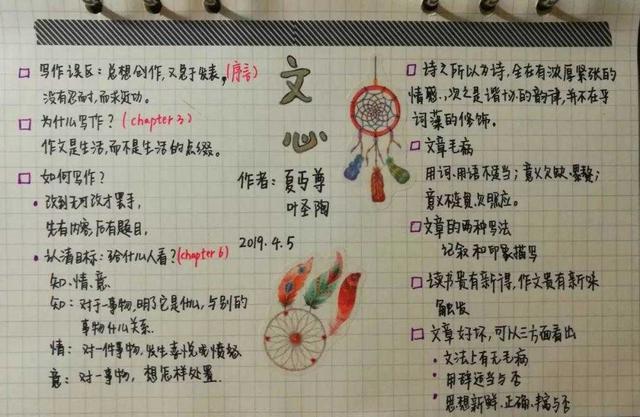 写作误区：总想创作，又急于发表，(序言)
没有忍耐，而求近功。
为什么写作？(chapter 3)
作文是生活，而不是生活的点缀。
如何写作？
改到无可改才罢手，
先有内容，后有题目，
认清目标：给什么人看？(chapter 6)
知、情、意
知：对于一事物，明了它是什么，与别的
事物什么关系.
情：对一件事物，发生喜悦或愤怒
意：对一事物，想怎样处置.
文心
作者：夏丏尊
叶圣陶
2019.4.5
诗之所以为诗，全在有浓厚紧张的
情感，次之是谐协的韵律，并不在乎
词藻的修饰。
文章毛病
用词、用语不适当；意义欠缺、累赘；
意义不连贯、欠照应。
文章的两种写法
记叙和印象描写
读书贵有新得，作文贵有新味
触发
文章好坏，可以三方面看出
文法上有无毛病
用辞适当与否
思想新鲜、正确、丰富与否